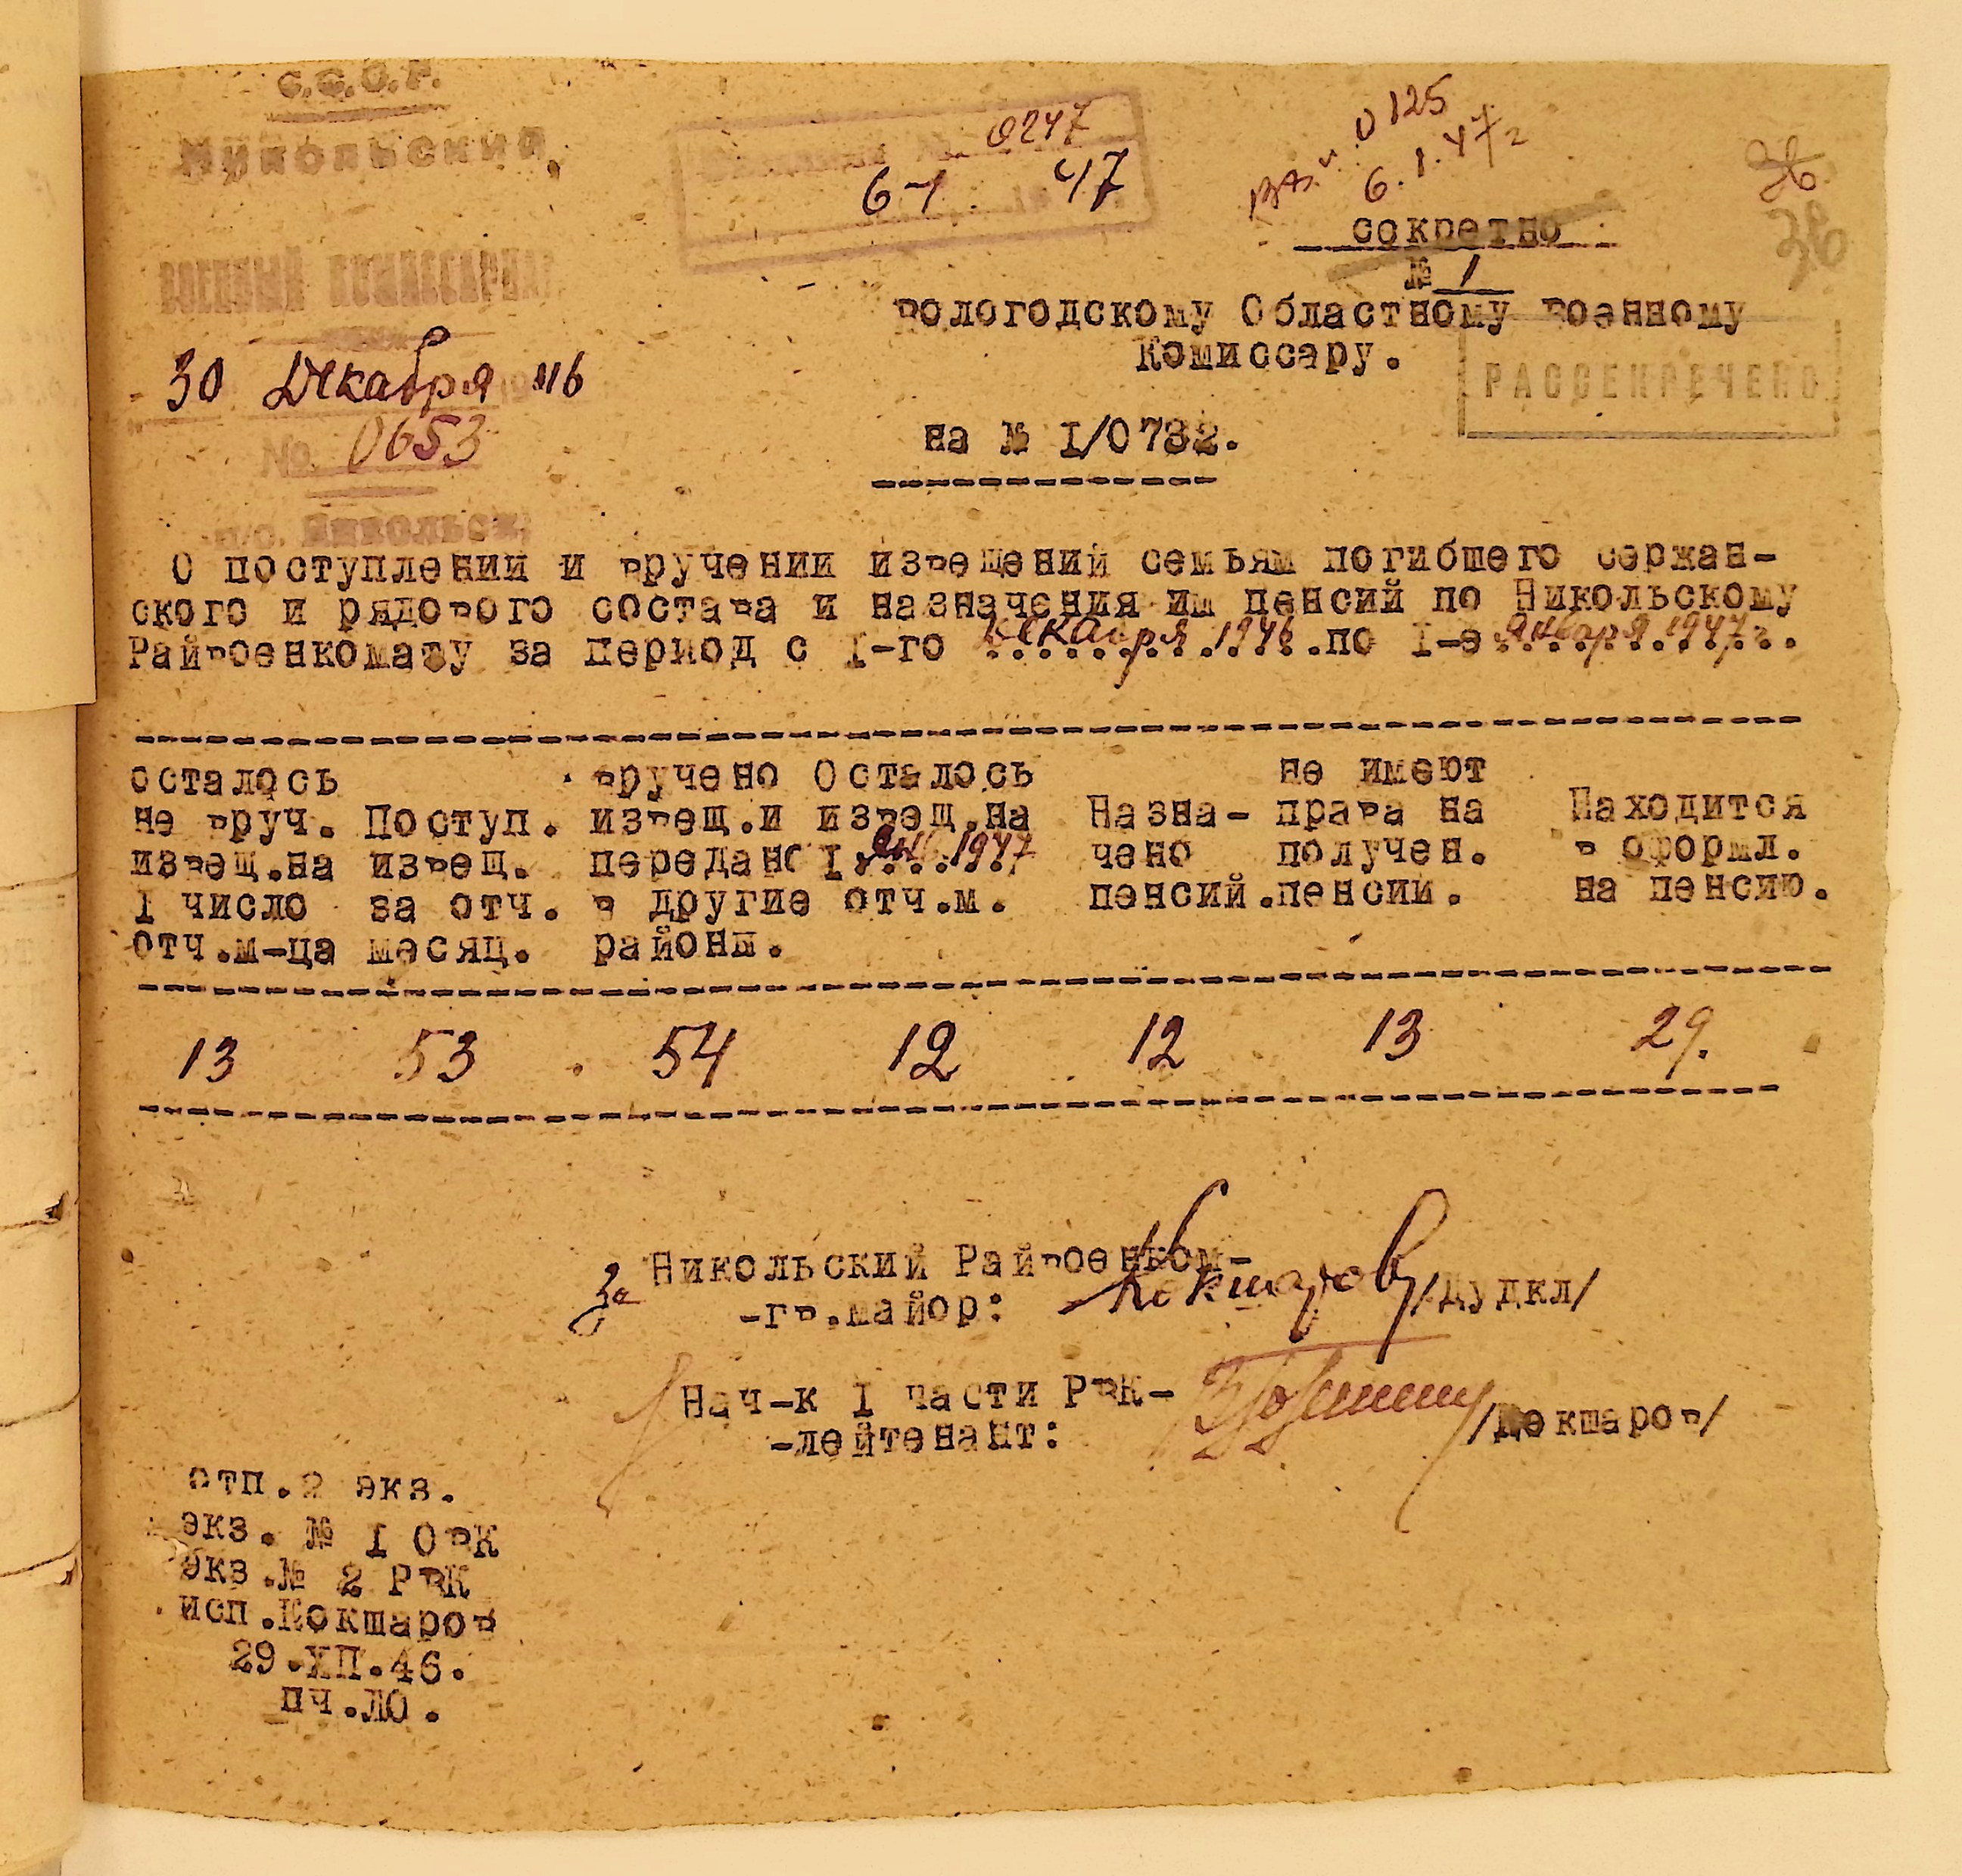 С.С.С.Р.
Никольский
ВОЕННЫЙ КОМИССАРИАТ
30 Декабря 1946
№ 0653
п/о. Никольск,
0247
6-1 1947
Вх. н. 0125
6.1.47г
36
36
секретно
№ 1
Вологодскому Областному Военному
Комиссару.
РАССЕКРЕЧЕНО
на № I/0732.
О поступлении и вручении извещений семьям погибшего сержан-
ского и рядового состава и назначения им пенсий по Никольскому
Райвоенкомату за период с I-го декабря 1946 .по I-е января 1947г..
осталось вручено Осталось не имеют
не вруч. Поступ. извещ.и извещ.на Назна- права на Находится
извещ.на извещ. передано I янв. 1947 чено получен. в оформл.
I число за отч. в другие отч.м. пенсий.пенсии. на пенсию.
отч.м-ца месяц. районы.
13 53 54 12 12 13 29.
За Никольский Райвоенком-
-гв.майор: Кокшаров /Дудкл/
Нач-к I части РВК-
-лейтенант: /Кокшаров/
отп.2 экз.
экз. № I ОВК
экз.№ 2 РВК
исп.Кокшаров
29.ХП.46.
пч.ЛО.